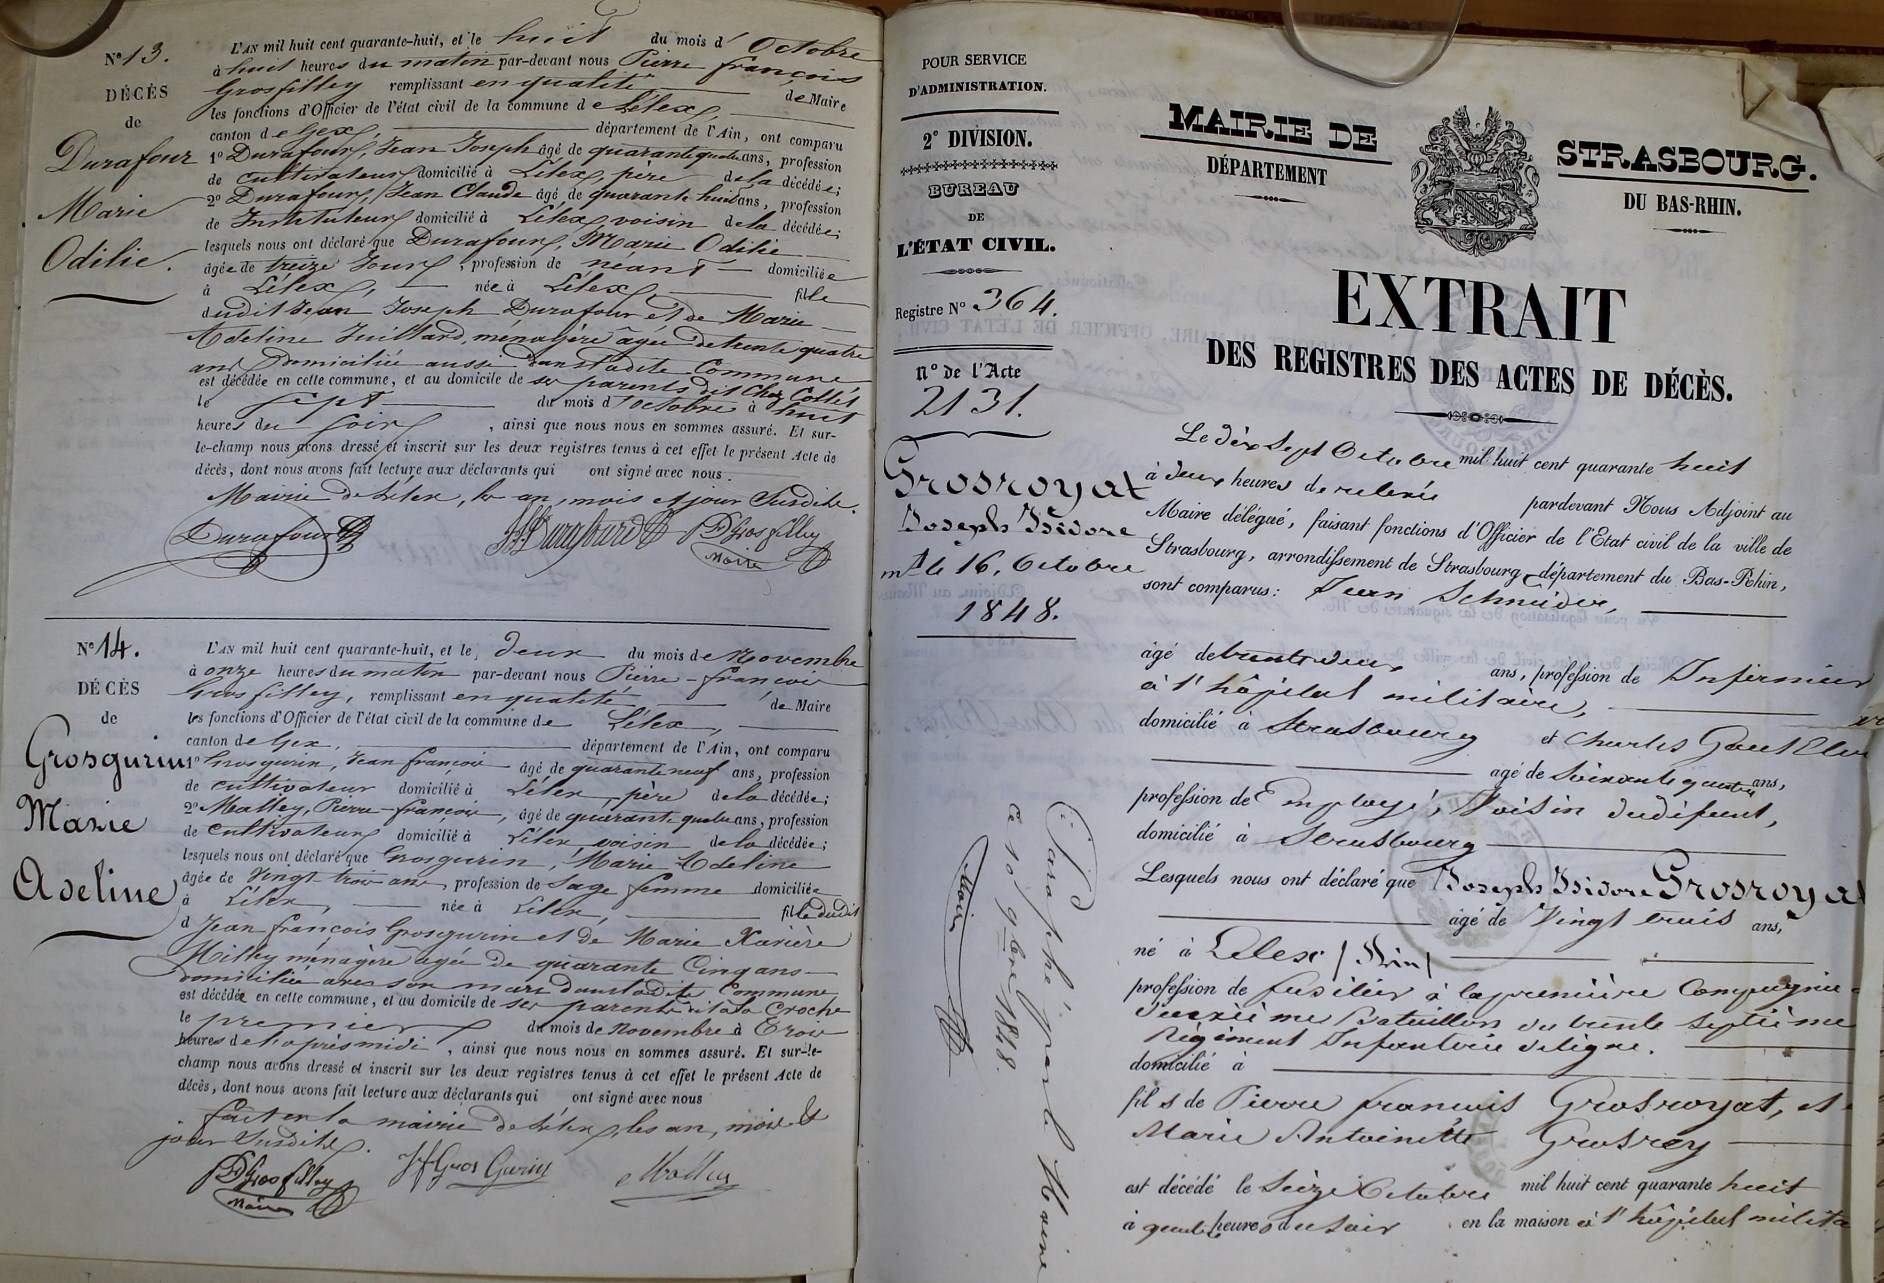 N° 13.
DÉCÈS
de
Durafour
Marie
Odilie.
L'AN mil huit cent quarante-huit, et le huit du mois d' Octobre
à huit heures du matin par-devant nous Pierre françois
Grosfilley remplissant en qualité de Maire
les fonctions d'Officier de l'état civil de la commune de Lélex,
canton de Gex, département de l'Ain, ont comparu
1° Durafour, Jean Joseph âgé de quarante quatre ans, profession
de cultivateur domicilié à Lélex, père de la décédée;
2° Durafour, Jean Claude âgé de quarante huit ans, profession
de Instituteur domicilié à Lélex, voisin de la décédée;
lesquels nous ont déclaré que Durafour, Marie Odilie
âgée de treize Jours, profession de néant domiciliée
à Lélex, née à Lélex, fille
dudit Jean Joseph Durafour et de Marie
Adeline Juillard, ménagère âgée de trente quatre
ans Domiciliée aussi dans ladite Commune
est décédée en cette commune, et au domicile de ses parents dit Chez Collet
le sept du mois d'octobre à huit
heures du soir, ainsi que nous nous en sommes assuré. Et sur-
le-champ nous avons dressé et inscrit sur les deux registres tenus à cet effet le présent Acte de
décès, dont nous avons fait lecture aux déclarants qui ont signé avec nous.
Mairie de Lélex, les an, mois et jour Susdits.
Durafour Durafour Grosfilley
Maire
N° 14.
DÉCÈS
de
Grosgurin
Marie
Adeline
L'AN mil huit cent quarante-huit, et le deux du mois de Novembre
à onze heures du matin par-devant nous Pierre-françois
Grosfilley, remplissant en qualité de Maire
les fonctions d'Officier de l'état civil de la commune de Lélex,
canton de Gex, département de l'Ain, ont comparu
1° Grosgurin, Jean françois âgé de quarante neuf ans, profession
de cultivateur domicilié à Lélex, père de la décédée;
2° Malley, Pierre-françois, âgé de quarante quatre ans, profession
de cultivateur domicilié à Lélex, voisin de la décédée;
lesquels nous ont déclaré que Grosgurin, Marie Adeline
âgée de Vingt trois ans, profession de Sage femme domiciliée
à Lélex, née à Lélex, fille dudit
d Jean françois Grosgurin et de Marie Xavière
Milley ménagère âgée de quarante Cinq ans
domiciliée avec son mari dans ladite Commune
est décédée en cette commune, et au domicile de ses parents dit à la Croche
le premier du mois de Novembre à Trois
heures de l'après midi, ainsi que nous nous en sommes assuré. Et sur-le-
champ nous avons dressé et inscrit sur les deux registres tenus à cet effet le présent Acte de
décès, dont nous avons fait lecture aux déclarants qui ont signé avec nous
fait en la mairie de Lélex, les an, mois et
jour Susdits.
Grosfilley Jf Gros Gurin Malley
Maire
POUR SERVICE
D'ADMINISTRATION.
2e DIVISION.
BUREAU
DE
L'ÉTAT CIVIL.
Registre N° 364.
N° de l'Acte
2131.
Grosroyat
Joseph Isidore
mt le 16. Octobre
1848.
MAIRIE DE STRASBOURG.
DÉPARTEMENT DU BAS-RHIN.
EXTRAIT
DES REGISTRES DES ACTES DE DÉCÈS.
Le dix Sept Octobre mil huit cent quarante huit
à deux heures de relevée pardevant Nous Adjoint au
Maire délégué, faisant fonctions d'Officier de l'Etat civil de la ville de
Strasbourg, arrondissement de Strasbourg département du Bas-Rhin,
sont comparus: Jean Schneider,
âgé de trente deux ans, profession de Infirmier
à l'hôpital militaire,
domicilié à Strasbourg et Charles
agé de Soixante quatre ans,
profession de Employé, Voisin du défunt,
domicilié à Strasbourg
Lesquels nous ont déclaré que Joseph Isidore Grosroyat
âgé de Vingt trois ans,
né à Lelex (Ain)
profession de fusilier à la première Compagnie
deuxième Bataillon du trente Septième
Régiment Infanterie de ligne.
domicilié à
fils de Pierre francois Grosroyat, et
Marie Antoinette Grosrey
est décédé le Seize Octobre mil huit cent quarante huit
à quatre heures du soir en la maison à l'hôpital milita
Paraphé par le Maire
ce 10 9bre 1848.
Maire